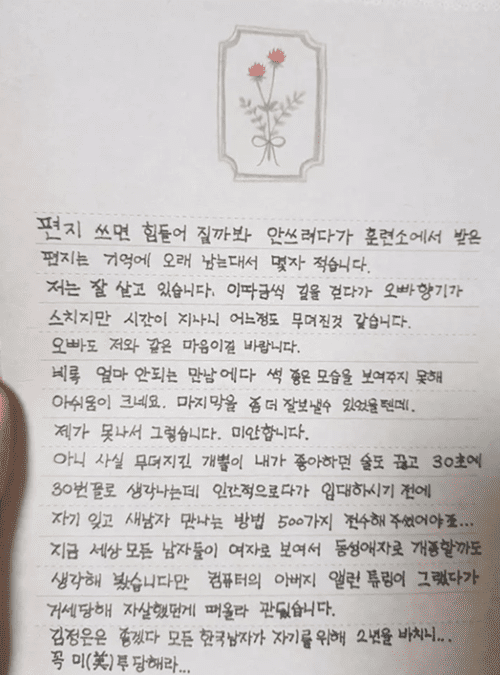 편지 쓰면 힘들어 질까봐 안쓰려다가 훈련소에서 받은
편지는 기억에 오래 남는대서 몇자 적습니다.
저는 잘 살고 있습니다. 이따금씩 길을 걷다가 오빠향기가
스치지만 시간이 지나니 어느정도 무뎌진것 같습니다.
오빠도 저와 같은 마음이길 바랍니다.
비록 얼마 안되는 만남에다 썩 좋은 모습을 보여주지 못해
아쉬움이 크네요. 마지막을 좀 더 잘보낼수 있었을텐데.
제가 못나서 그렇습니다. 미안합니다.
아니 사실 무뎌지긴 개뿔이 내가 좋아하던 술도 끊고 30초에
30번꼴로 생각나는데 인간적으로다가 입대하시기 전에
자기 잊고 새남자 만나는 방법 500가지 전수해 주셨어야죠...
지금 세상 모든 남자들이 여자로 보여서 동성애자로 개종할까도
생각해 봤습니다만 컴퓨터의 아버지 앨런 튜링이 그랬다가
거세당해 자살했던게 떠올라 관뒀습니다.
김정은은 좋겠다 모든 한국남자가 자기를 위해 2년을 바치니...
꼭 미(美)루당해라...